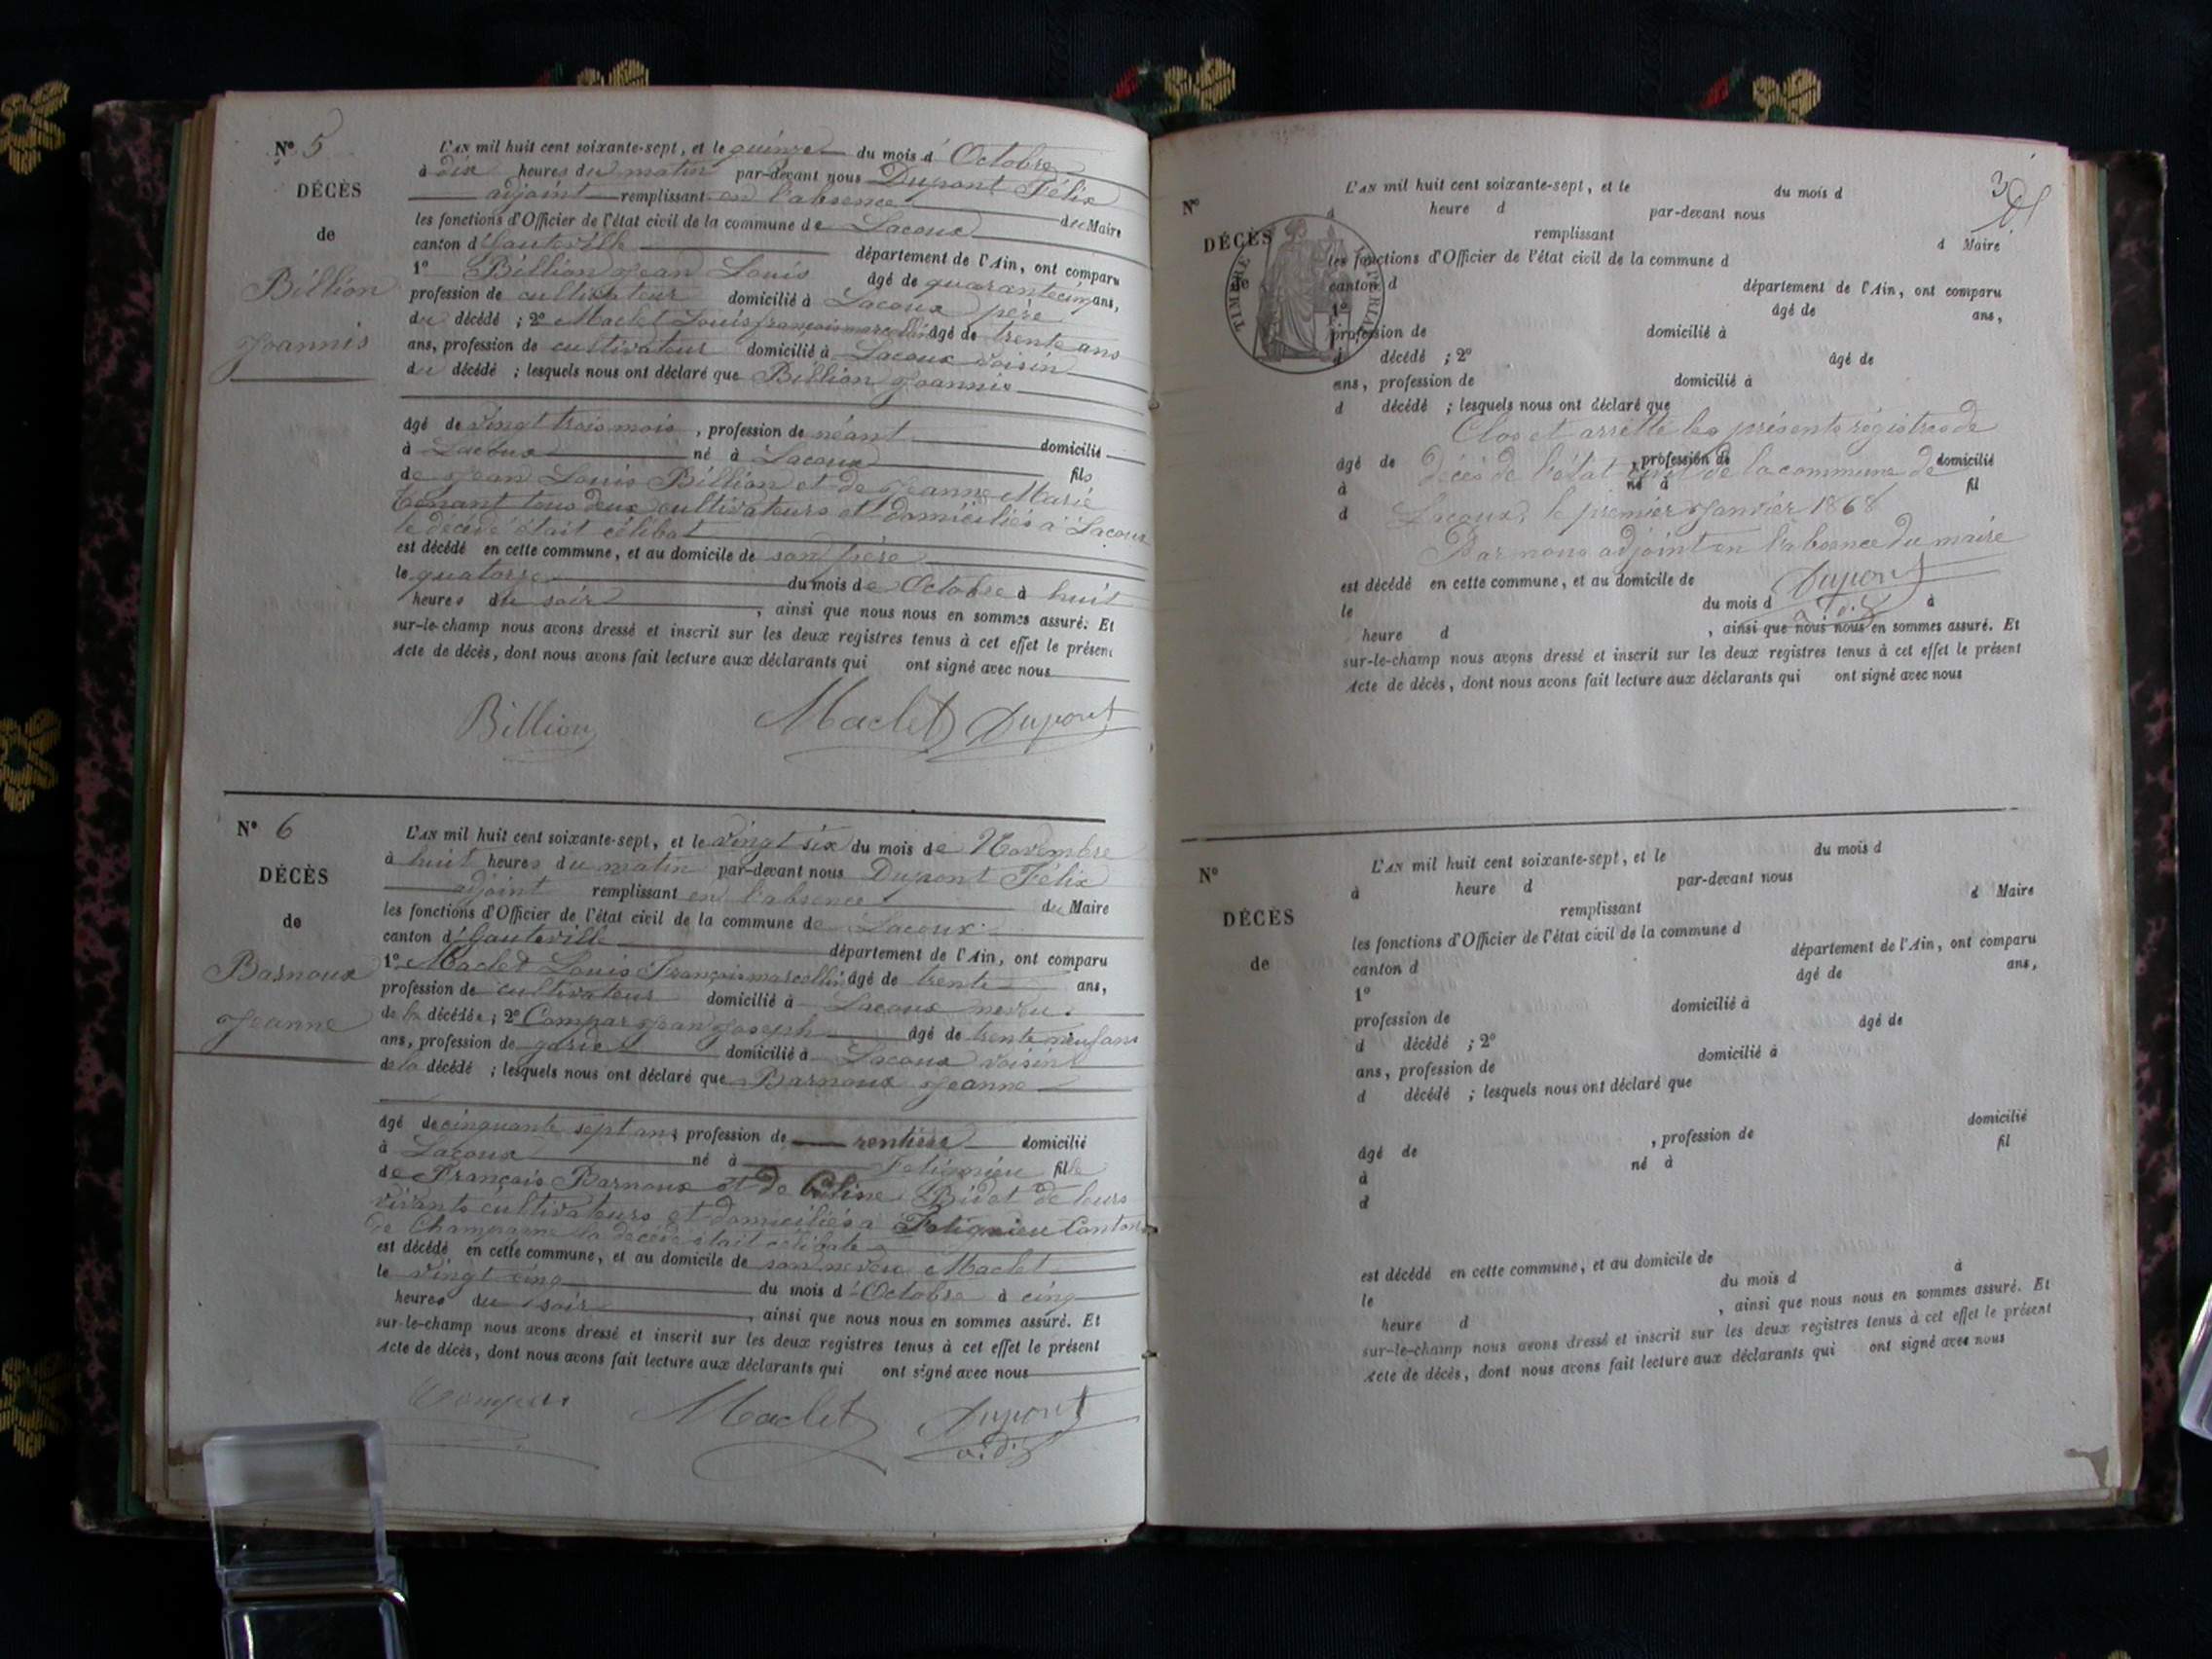 N° 5
DÉCÈS
de
Billion
Joannis
L'AN mil huit cent soixante-sept, et le quinze du mois d'Octobre
à dix heures du matin par-devant nous Dupont Félix
adjoint remplissant en l'absence du Maire
les fonctions d'Officier de l'état civil de la commune de Lacoux
canton d'hauteville département de l'Ain, ont comparu
1° Billion Jean Louis âgé de quarante cinq ans,
profession de cultivateur domicilié à Lacoux père
du décédé ; 2° Maclet Louis françois marcellin âgé de trente ans
ans, profession de cultivateur domicilié à Lacoux voisin
du décédé ; lesquels nous ont déclaré que Billion Joannis
âgé de vingt trois mois, profession de néant domicilié
à Lacoux né à Lacoux fils
de Jean Louis Billion et de Jeanne Marie
tous deux cultivateurs et domiciliés à Lacoux
le décédé était célibat
est décédé en cette commune, et au domicile de son père
le quatorze du mois de Octobre à huit
heures du soir, ainsi que nous nous en sommes assuré. Et
sur-le-champ nous avons dressé et inscrit sur les deux registres tenus à cet effet le présent
Acte de décès, dont nous avons fait lecture aux déclarants qui ont signé avec nous
Billion Maclet Dupont
N° 6
DÉCÈS
de
Barnoux
Jeanne
L'AN mil huit cent soixante-sept, et le vingt six du mois de Novembre
à huit heures du matin par-devant nous Dupont Félix
adjoint remplissant en l'absence du Maire
les fonctions d'Officier de l'état civil de la commune de Lacoux
canton d'hauteville département de l'Ain, ont comparu
1° Maclet Louis François marcellin âgé de trente ans,
profession de cultivateur domicilié à Lacoux neveu
de la décédée ; 2° Compar Jean Joseph âgé de trente neuf ans
ans, profession de garde domicilié à Lacoux voisin
de la décédé ; lesquels nous ont déclaré que Barnoux Jeanne
âgé de cinquante sept ans, profession de rentière domicilié
à Lacoux né à Fitignieu fille
de François Barnoux et de Bidet de leurs
vivants cultivateurs et domiciliés à Fitignieu Canton
de Champagne la décédé était célibate
est décédé en cette commune, et au domicile de son neveu Maclet
le vingt cinq du mois d'Octobre à cinq
heures du soir, ainsi que nous nous en sommes assuré. Et
sur-le-champ nous avons dressé et inscrit sur les deux registres tenus à cet effet le présent
Acte de décès, dont nous avons fait lecture aux déclarants qui ont signé avec nous
Compar Maclet Dupont
adj
3
N°
DÉCÈS
de
TIMBRE IMPERIAL
L'AN mil huit cent soixante-sept, et le du mois d
à heure d par-devant nous
remplissant d Maire
les fonctions d'Officier de l'état civil de la commune d
canton d département de l'Ain, ont comparu
1° âgé de ans,
profession de domicilié à
d décédé ; 2° âgé de
ans, profession de domicilié à
d décédé ; lesquels nous ont déclaré que
Clos et arretté les présents régistres de
âgé de , profession de domicilié
décès de l'état civil de la commune de
à né à fil
d
Lacoux, le premier Janvier 1868
Par nous adjoint en l'absence du maire
est décédé en cette commune, et au domicile de
Dupont
adj
le du mois d à
heure d , ainsi que nous nous en sommes assuré. Et
sur-le-champ nous avons dressé et inscrit sur les deux registres tenus à cet effet le présent
Acte de décès, dont nous avons fait lecture aux déclarants qui ont signé avec nous
N°
DÉCÈS
de
L'AN mil huit cent soixante-sept, et le du mois d
à heure d par-devant nous
remplissant d Maire
les fonctions d'Officier de l'état civil de la commune d
canton d département de l'Ain, ont comparu
1° âgé de ans,
profession de domicilié à
d décédé ; 2° âgé de
ans, profession de domicilié à
d décédé ; lesquels nous ont déclaré que
âgé de , profession de domicilié
à né à fil
d
est décédé en cette commune, et au domicile de
le du mois d à
heure d , ainsi que nous nous en sommes assuré. Et
sur-le-champ nous avons dressé et inscrit sur les deux registres tenus à cet effet le présent
Acte de décès, dont nous avons fait lecture aux déclarants qui ont signé avec nous